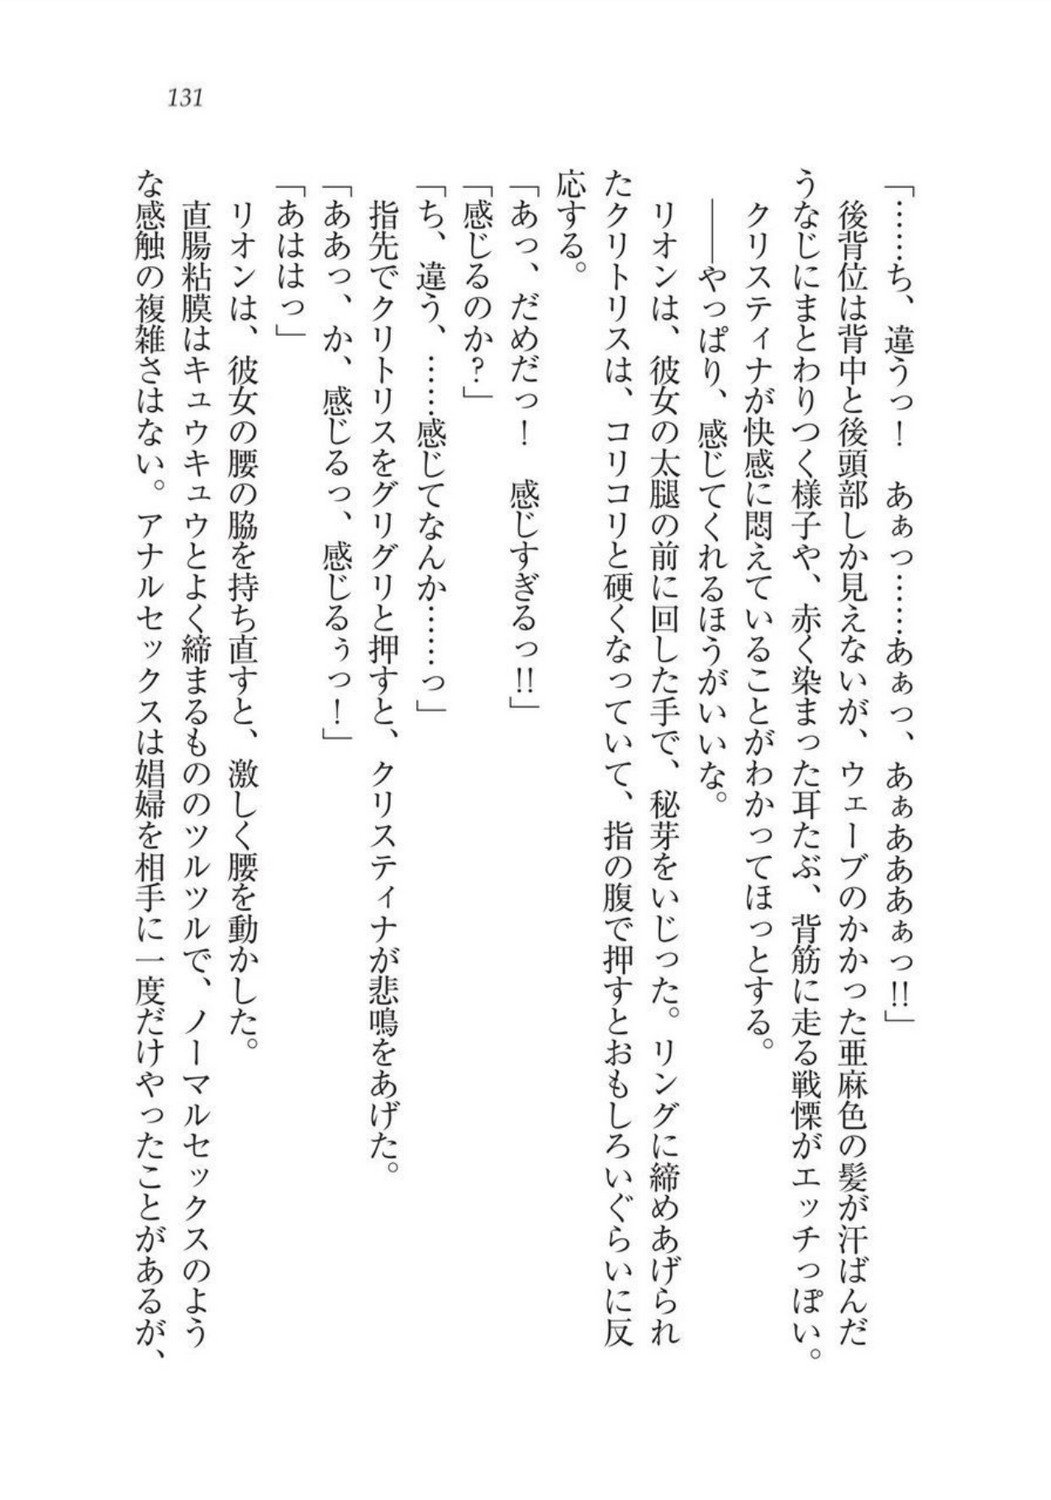 131
「……ち、違うっ！　あぁっ……あぁっ、あぁあああぁっ!!」
後背位は背中と後頭部しか見えないが、ウェーブのかかった亜麻色の髪が汗ばんだ
うなじにまとわりつく様子や、赤く染まった耳たぶ、背筋に走る戦慄がエッチっぽい。
クリスティナが快感に悶えていることがわかってほっとする。
――やっぱり、感じてくれるほうがいいな。
リオンは、彼女の太腿の前に回した手で、秘芽をいじった。リングに締めあげられ
たクリトリスは、コリコリと硬くなっていて、指の腹で押すとおもしろいぐらいに反
応する。
「あっ、だめだっ！　感じすぎるっ!!」
「感じるのか？」
「ち、違う、……感じてなんか……っ」
指先でクリトリスをグリグリと押すと、クリスティナが悲鳴をあげた。
「ああっ、か、感じるっ、感じるぅっ！」
「あははっ」
リオンは、彼女の腰の脇を持ち直すと、激しく腰を動かした。
直腸粘膜はキュウキュウとよく締まるもののツルツルで、ノーマルセックスのよう
な感触の複雑さはない。アナルセックスは娼婦を相手に一度だけやったことがあるが、